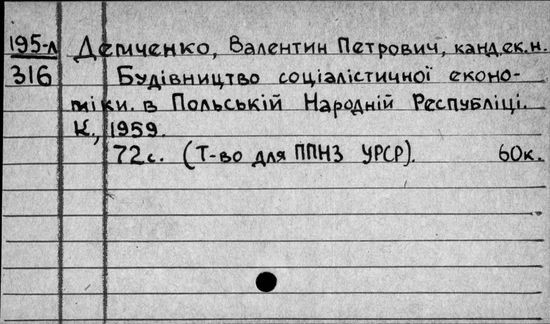 195-л Демченко, Валентин Петрович, канд.ек.н.
316 Будівництво соціалістичної еконо-
міки. в Польській Народній Республіці.
К., 1959.
72с. (Т-во для ППНЗ УРСР). 60к.